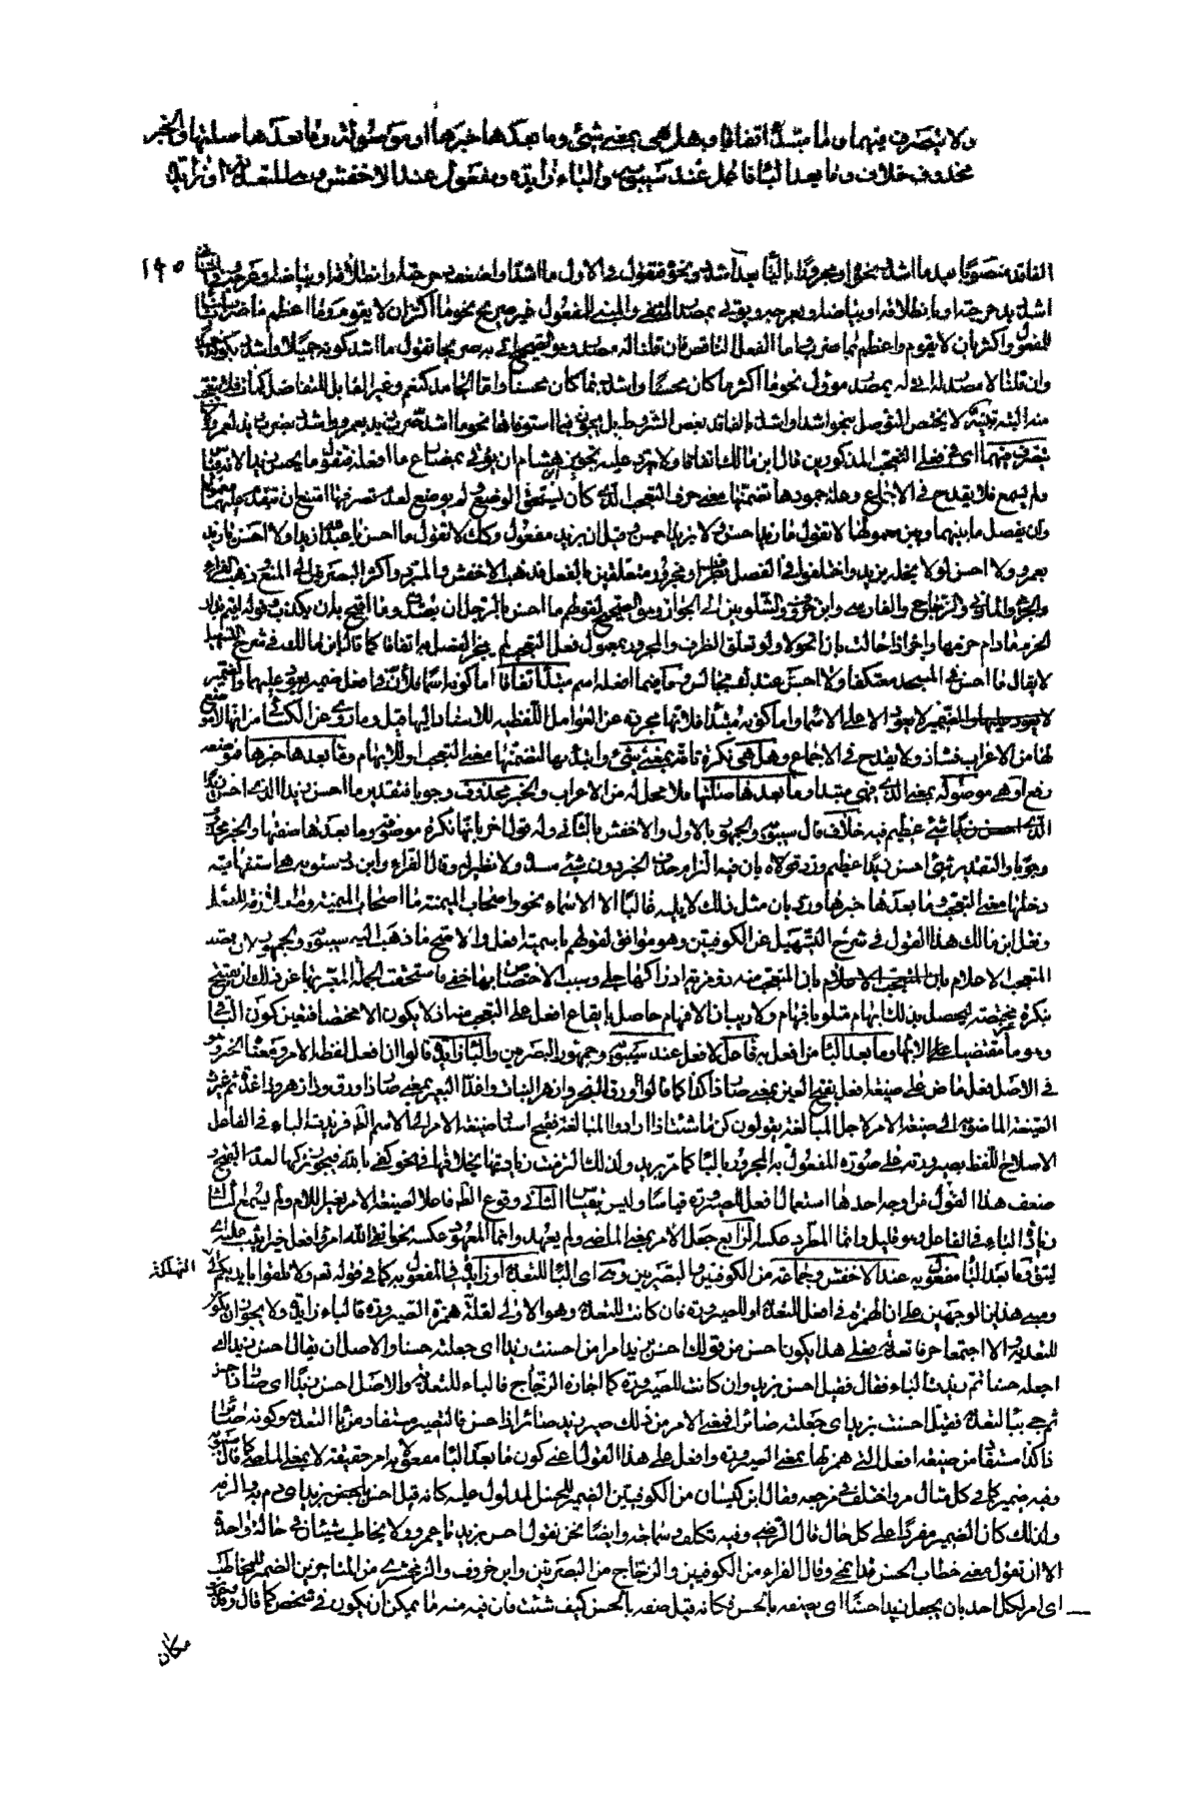 ولا يتصرف فيهما وما مبتدأ اتفاقا وهل هي بمعنى شيئ وما بعدها خبرها او موصولة وما بعدها صلتها والخبر
محذوف خلاف وما بعد الباء فاعل عند سيبويه والباء زايدة ومفعول عند الاخفش والباء للتعدية او زايدة
١٤٥
الفاقد منصوبا بعد ما اشد ونحوه او مجرورا بالباء بعد اشدد ونحوه فتقول في الاول ما اشد او اضعف دحرجته او انطلاقه او بياضه او عرجه وفي الثاني
اشدد بدحرجته او بانطلاقه او بياضه او بعرجه ويؤتى بمصدر المنفي والمبني للمفعول غير صريح نحو ما اكثر ان لا يقوم وما اعظم ما ضرب
واكثر بان لا يقوم واعظم بما ضرب اما الفعل الناقص فان قلنا له مصدر وهو الصحيح اتي به صريحا تقول ما اشد كونه جميلا واشدد بكونه
وان قلنا لا مصدر له اتي له بمصدر مؤول نحو ما اكثر ما كان محسنا واشدد بما كان محسنا واما الجامد كنعم وغير القابل للتفاضل كمات فلا يتعجب
منه البتة تنبيه لا يختص التوصل بنحو اشد او اشدد بالفاقد بعض الشروط بل يجوز فيما استوفاها نحو ما اشد ضرب زيد لعمرو واشدد بضرب زيد لعمرو ولا
يتصرف فيهما اي في فعلي التعجب المذكورين قال ابن مالك اتفاقا ولا يرد عليه تجويز هشام ان يؤتى بمضارع ما افعله فتقول ما يحسن زيدا لانه قياس
ولم يسمع فلا يقدح في الاجماع وعلة جمودها تضمنها معنى حرف التعجب الذي كان يستحق الوضع ولم يوضع لعدم تصرفها امتنع ان يتقدم عليهما معمولهما
وان يفصل ما بينهما وبين معمولهما لا تقول ما زيدا احسن ولا بزيد احسن وان قيل ان بزيد مفعول وكذلك لا تقول ما احسن يا عبد الله زيدا ولا احسن يا زيد
بعمرو ولا احسن لولا بخله بزيد واختلفوا في الفصل بظرف او مجرور متعلقين بالفعل فذهب الاخفش والمبرد واكثر البصريين الى المنع وذهب الفراء
والجرمي والمازني والزجاج والفارسي وابن خروف والشلوبين الى الجواز وهو الصحيح لقولهم ما احسن بالرجل ان يصدق وما اقبح به ان يكذب وقوله اقيم بدار
الحزم ما دام حزمها واحر اذا حالت بان اتحولا ولو تعلق الظرف والمجرور بمعمول فعل التعجب لم يجز الفصل به اتفاقا كما قال ابن مالك في شرح التسهيل
لا يقال ما احسن في المسجد معتكفا ولا احسن عندك بجالس وما في ما افعله اسم مبتدأ اتفاقا اما كونه اسما فلأن في افعل ضميرا يعود عليها والضمير
لا يعود الا على الاسماء واما كونه مبتدأ فلانها مجردة عن العوامل اللفظية للاسناد اليها قيل وما روي عن الكسائي من انها لا موضع
لها من الاعراب فشاذ ولا يقدح في الاجماع وهل هي نكرة تامة بمعنى شيئ وابتدئ بها لتضمنها معنى التعجب او للابهام وما بعدها خبرها فموضعه
رفع او هي موصولة بمعنى الذي فهي مبتدأ وما بعدها صلتها فلا محل له من الاعراب والخبر محذوف وجوبا فتقدير ما احسن زيدا الذي احسن زيدا
شيئ عظيم فيه خلاف قال سيبويه والجمهور بالاول والاخفش بالثاني وله قول اخر بانها نكرة موصوفة وما بعدها صفتها والخبر محذوف
وجوبا والتقدير شيئ احسن زيدا عظيم ورد قولاه بان فيه التزام حذف الخبر دون شيئ مسده ولا نظير له وقال الفراء وابن درستويه هي استفهامية
دخلها معنى التعجب وما بعدها خبرها ورد بان مثل ذلك لا يليه غالبا الا الاسماء نحو واصحاب الميمنة ما اصحاب الميمنة
ونقل ابن مالك هذا القول في شرح التسهيل عن الكوفيين وهو موافق لقولهم باسمية افعل والاصح ما ذهب اليه سيبويه والجمهور لان قصد
المتعجب الاعلام بان المتعجب منه ذو مزية ادراكها جلي وسبب الاختصاص بها خفي فاستحقت الجملة المعبر بها عن ذلك ان تفتتح
بنكرة غير مختصة ليحصل بذلك ابهام متلو بافهام ولا ريب ان الافهام حاصل بايقاع افعل على المتعجب منه اذ لا يكون الا مختصا فتعين كون الباقي
وهو ما مقتضيا للابهام وما بعد الباء من افعل به فاعل لافعل عند سيبويه وجمهور البصريين والباء زايدة قالوا ان افعل لفظه الامر ومعناه الخبر وهو
في الاصل فعل ماض على صيغة افعل بفتح العين بمعنى صار ذا كذا كما قالوا اورق الشجر وازهر النبات واغد البعير بمعنى صار ذا ورق وذا زهر وذا غدة ثم غيرت
الصيغة الماضوية الى صيغة الامر لاجل المبالغة يقولون كن ما شئت اذا ارادوا المبالغة فقبح اسناد صيغة الامر الى الاسم الظاهر فزيدت الباء في الفاعل
لاصلاح اللفظ بصيرورته على صورة المفعول به المجرور بالباء كما مر بزيد ولذلك التزمت زيادتها بخلافها في نحو كفى بالله فيجوز تركها لعدم القبح
ضعف هذا القول من اوجه احدها استعمال افعل للصيرورة قياسا وليس بقياس الثاني وقوع الظاهر فاعلا لصيغة الامر بغير اللام ولم يسمع الثالث
زيادة الباء في الفاعل وهو قليل وانما المطرد عكسه الرابع جعل الامر بمعنى الماضي ولم يعهد وانما المعهود عكسه نحو اتقى الله امرؤ فعل خيرا يثب عليه اي
ليتق وما بعد الباء مفعول به عند الاخفش وجماعة من الكوفيين والبصريين وهي اي الباء للتعدية او زايدة في المفعول به كما في قوله تعالى ولا تلقوا بايديكم الى
التهلكة
ومبنى هذين الوجهين على ان الهمزة في افعل للتعدية او للصيرورة فان كانت للتعدية وهو الاولى لقلة همزة الصيرورة فالباء زايدة ولا يجوز ان يكون
للتعدية والا اجتمعا حرفا تعدية فعلى هذا يكون احسن من قولك احسن بزيد امرا من احسنت زيدا اي جعلته حسنا والاصل ان يقال احسن زيدا اي
اجعله حسنا ثم زيدت الباء فقال فقيل احسن بزيد وان كانت للصيرورة كما اجازه الزجاج فالباء للتعدية والاصل احسن زيد اي صار ذا حسن
ثم جيئ بباء التعدية فقيل احسنت بزيد اي جعلته صائرا فمعنى الامر من ذلك صير زيدا صائرا ذا حسن فالتصيير مستفاد من باء التعدية وكونه صائرا
ذا كذا مستفاد من صيغة افعل التي همزتها بمعنى الصيرورة وافعل على هذا القول اعني كون ما بعد الباء مفعولا به امر حقيقة لا بمعنى الماضي كما قال سيبويه
وفيه ضمير كما في كل مثال مر واختلف في مرجعه وقال ابن كيسان من الكوفيين الضمير للحسن المدلول عليه كانه قيل احسن يا حسن بزيد اي دم به والزمه
ولذلك كان الضمير مفردا على كل حال قال الرضي وفيه تكلف وسماجة وايضا نحن نقول احسن بزيد يا عمرو ولا يخاطب شيئان في حالة واحدة
الا ان نقول معنى خطاب الحسن قد انمحى وقال الفراء من الكوفيين والزجاج من البصريين وابن خروف والزمخشري من المتاخرين الضمير للمخاطب
اي امر لكل احد بان يجعل زيدا حسنا اي يصفه بالحسن فكانه قيل صفه بالحسن كيف شئت فان فيه منه ما يمكن ان يكون في شخص كما قال وقد وجدت
مكان